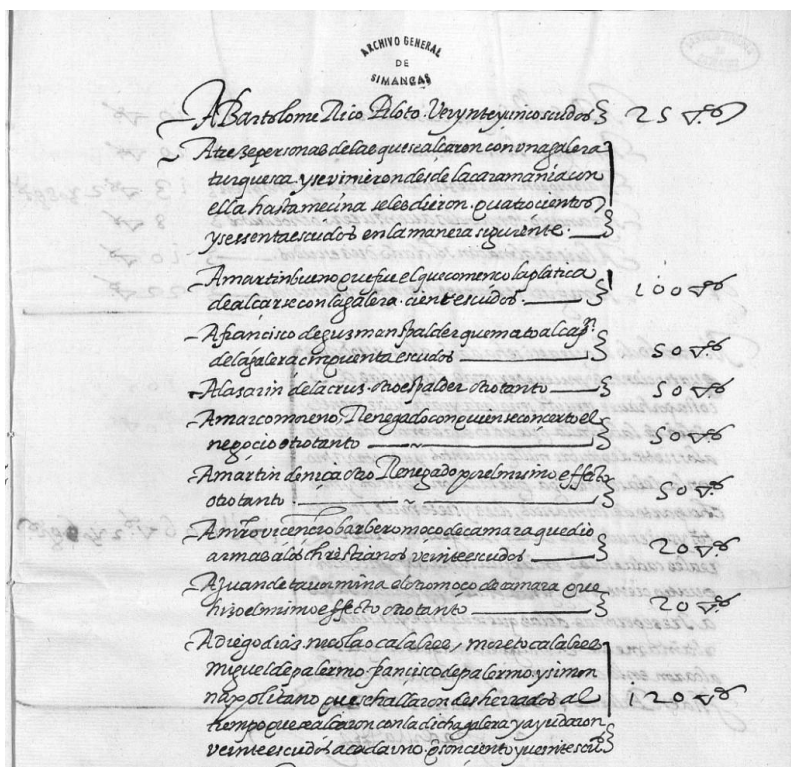 ARCHIVO GENERAL
DE
SIMANCAS
A Bartolome Rico Piloto. Veynte y cinco escudos 25 V.os
A treze personas de las que se alcaron con vna galera
turquesca. y se vinieron desde la caramania con
ella hasta mecina se les dieron. quatrocientos
y sessenta escudos en la manera siguiente.
A martin bueno que fue el que comenco la platica
de alcarse con la galera. cient escudos. 100 V.os
A francisco de gusman espalder que mato al cap.n
de la galera cinquenta escudos 50 V.os
A lasarin de la crus. otro espalder otro tanto 50 V.os
A marco moreno, Renegado con quien se concerto el
negocio otro tanto 50 V.os
A martin de niça otro Renegado por el mismo effecto
otro tanto. 50 V.os
A m.ro vicencio barbero moco de camara que dio
armas a los christianos veinte escudos. 20 V.os
A Juan de tauormina el otro moco de camara que
hizo el mismo effecto otro tanto 20 V.os
A diego dias. nicolao calabres, moreto calabres
miguel de palermo. francisco de palermo. y simon
napolitano que se hallaron desherrados al
tiempo que se alcaron con la dicha galera y ayudaron
veinte escudos a cada vno. que son ciento y veinte escu.os 120 V.os